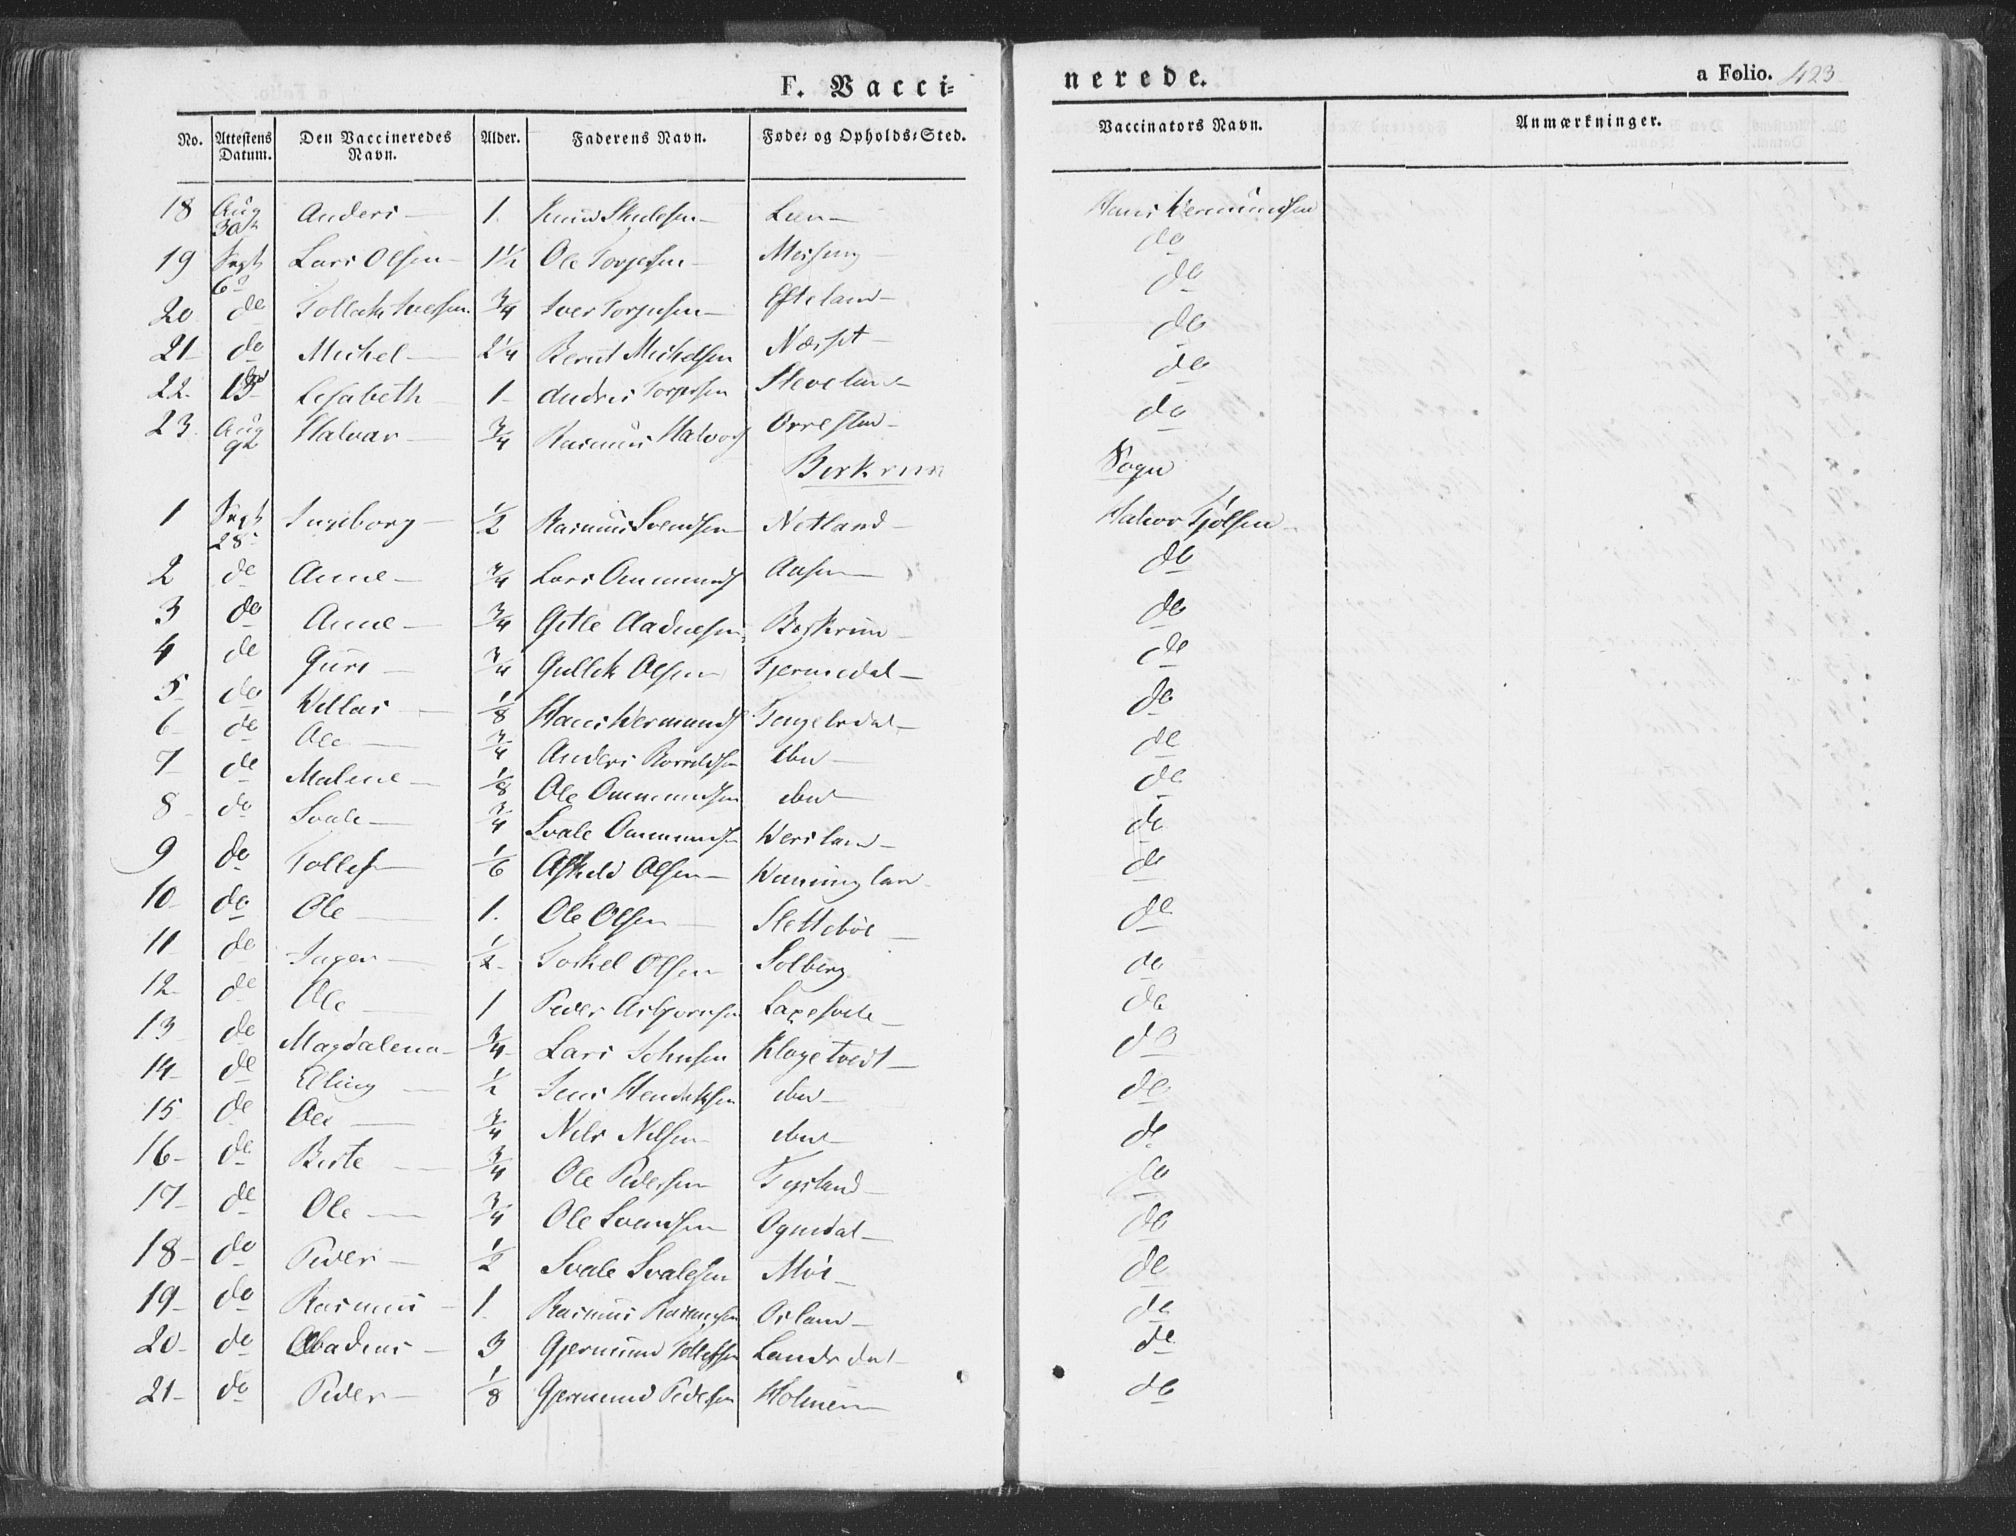 F. Vaccinerede. a Folio. 423
No. Attestens Datum. Den Vaccineredes Navn. Alder. Faderens Navn. Føde- og Opholds-Sted. Vaccinators Navn. Anmærkninger.
18 Aug 30te Anders 1. Skulesen Lien Hans Wermundsen
19 Sept 6 Lars Olsen 1½ Ole Torjesen Mysing do
20 do Tollack Iversen ¾ Iver Torjesen Efteland do
21 do Michel 2¼ Berent Michelsen do
22 13 Lisabeth 1 Anders Torjesen Steveland do
23 Aug 9de Halvar ¾ Rasmus Halvors Orrestad do
Birkrem Sogn
1 Sept 28 Ingeborg ½ Rasmus Svendsen Netland Halvor Tjølsen
2 do Anne ¾ Lars Ommunds Aasen do
3 do Anne ¾ Gitle Aadnesen Birkrem do
4 do Guri ¾ Gullik Olsen Gjermedal do
5 do 1/8 Hans Wermunds Tengelsdal do
6 do Ole ¾ Anders ibid do
7 do Malene 1/8 Ole Ommundsen ibid do
8 do Svale ¾ Svale Ommunds Werland do
9 do Tollef 1/6 Askild Olsen do
10 do Ole 1. Ole Olsen Slettebøe do
11 do Inger ½ Torkel Olsen Solberg do
12 do Ole 1 Peder Asbjørnsen do
13 do Magdalena ¾ Lars Johnsen Klogetvedt do
14 do Elling ½ Jens Hendriksen ibid do
15 do Ole ¾ Nils Nilsen ibid do
16 do Berte ¾ Ole Pedersen Tysland do
17 do Ole ¾ Ole Svendsen Ognedal do
18 do Peder ½ Svale Svalesen Møi do
19 do Rasmus 1. Rasmus Rasmussen Osland do
20 do 3 Gjermund Tollefsen Landsdal do
21 do Peder 1/8 Gjermund Pedersen Holmen do